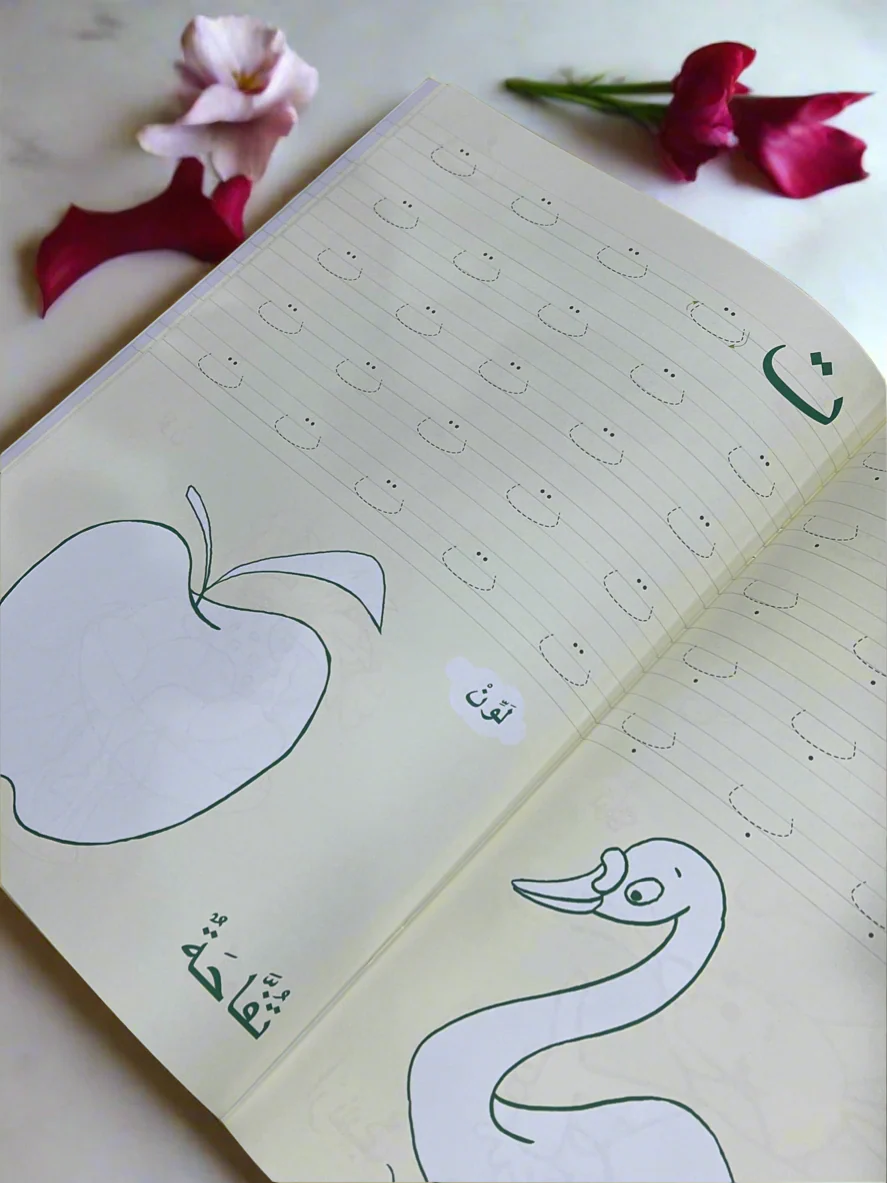 ب
ب
ب ب
ب ب
ب ب ب
ت ت ت ت ت
ت ت ت ت ت
ت ت ت ت ت
ت ت ت ت ت
ت ت ت ت ت
لَوِّنْ
تُفَّاحَةٌ